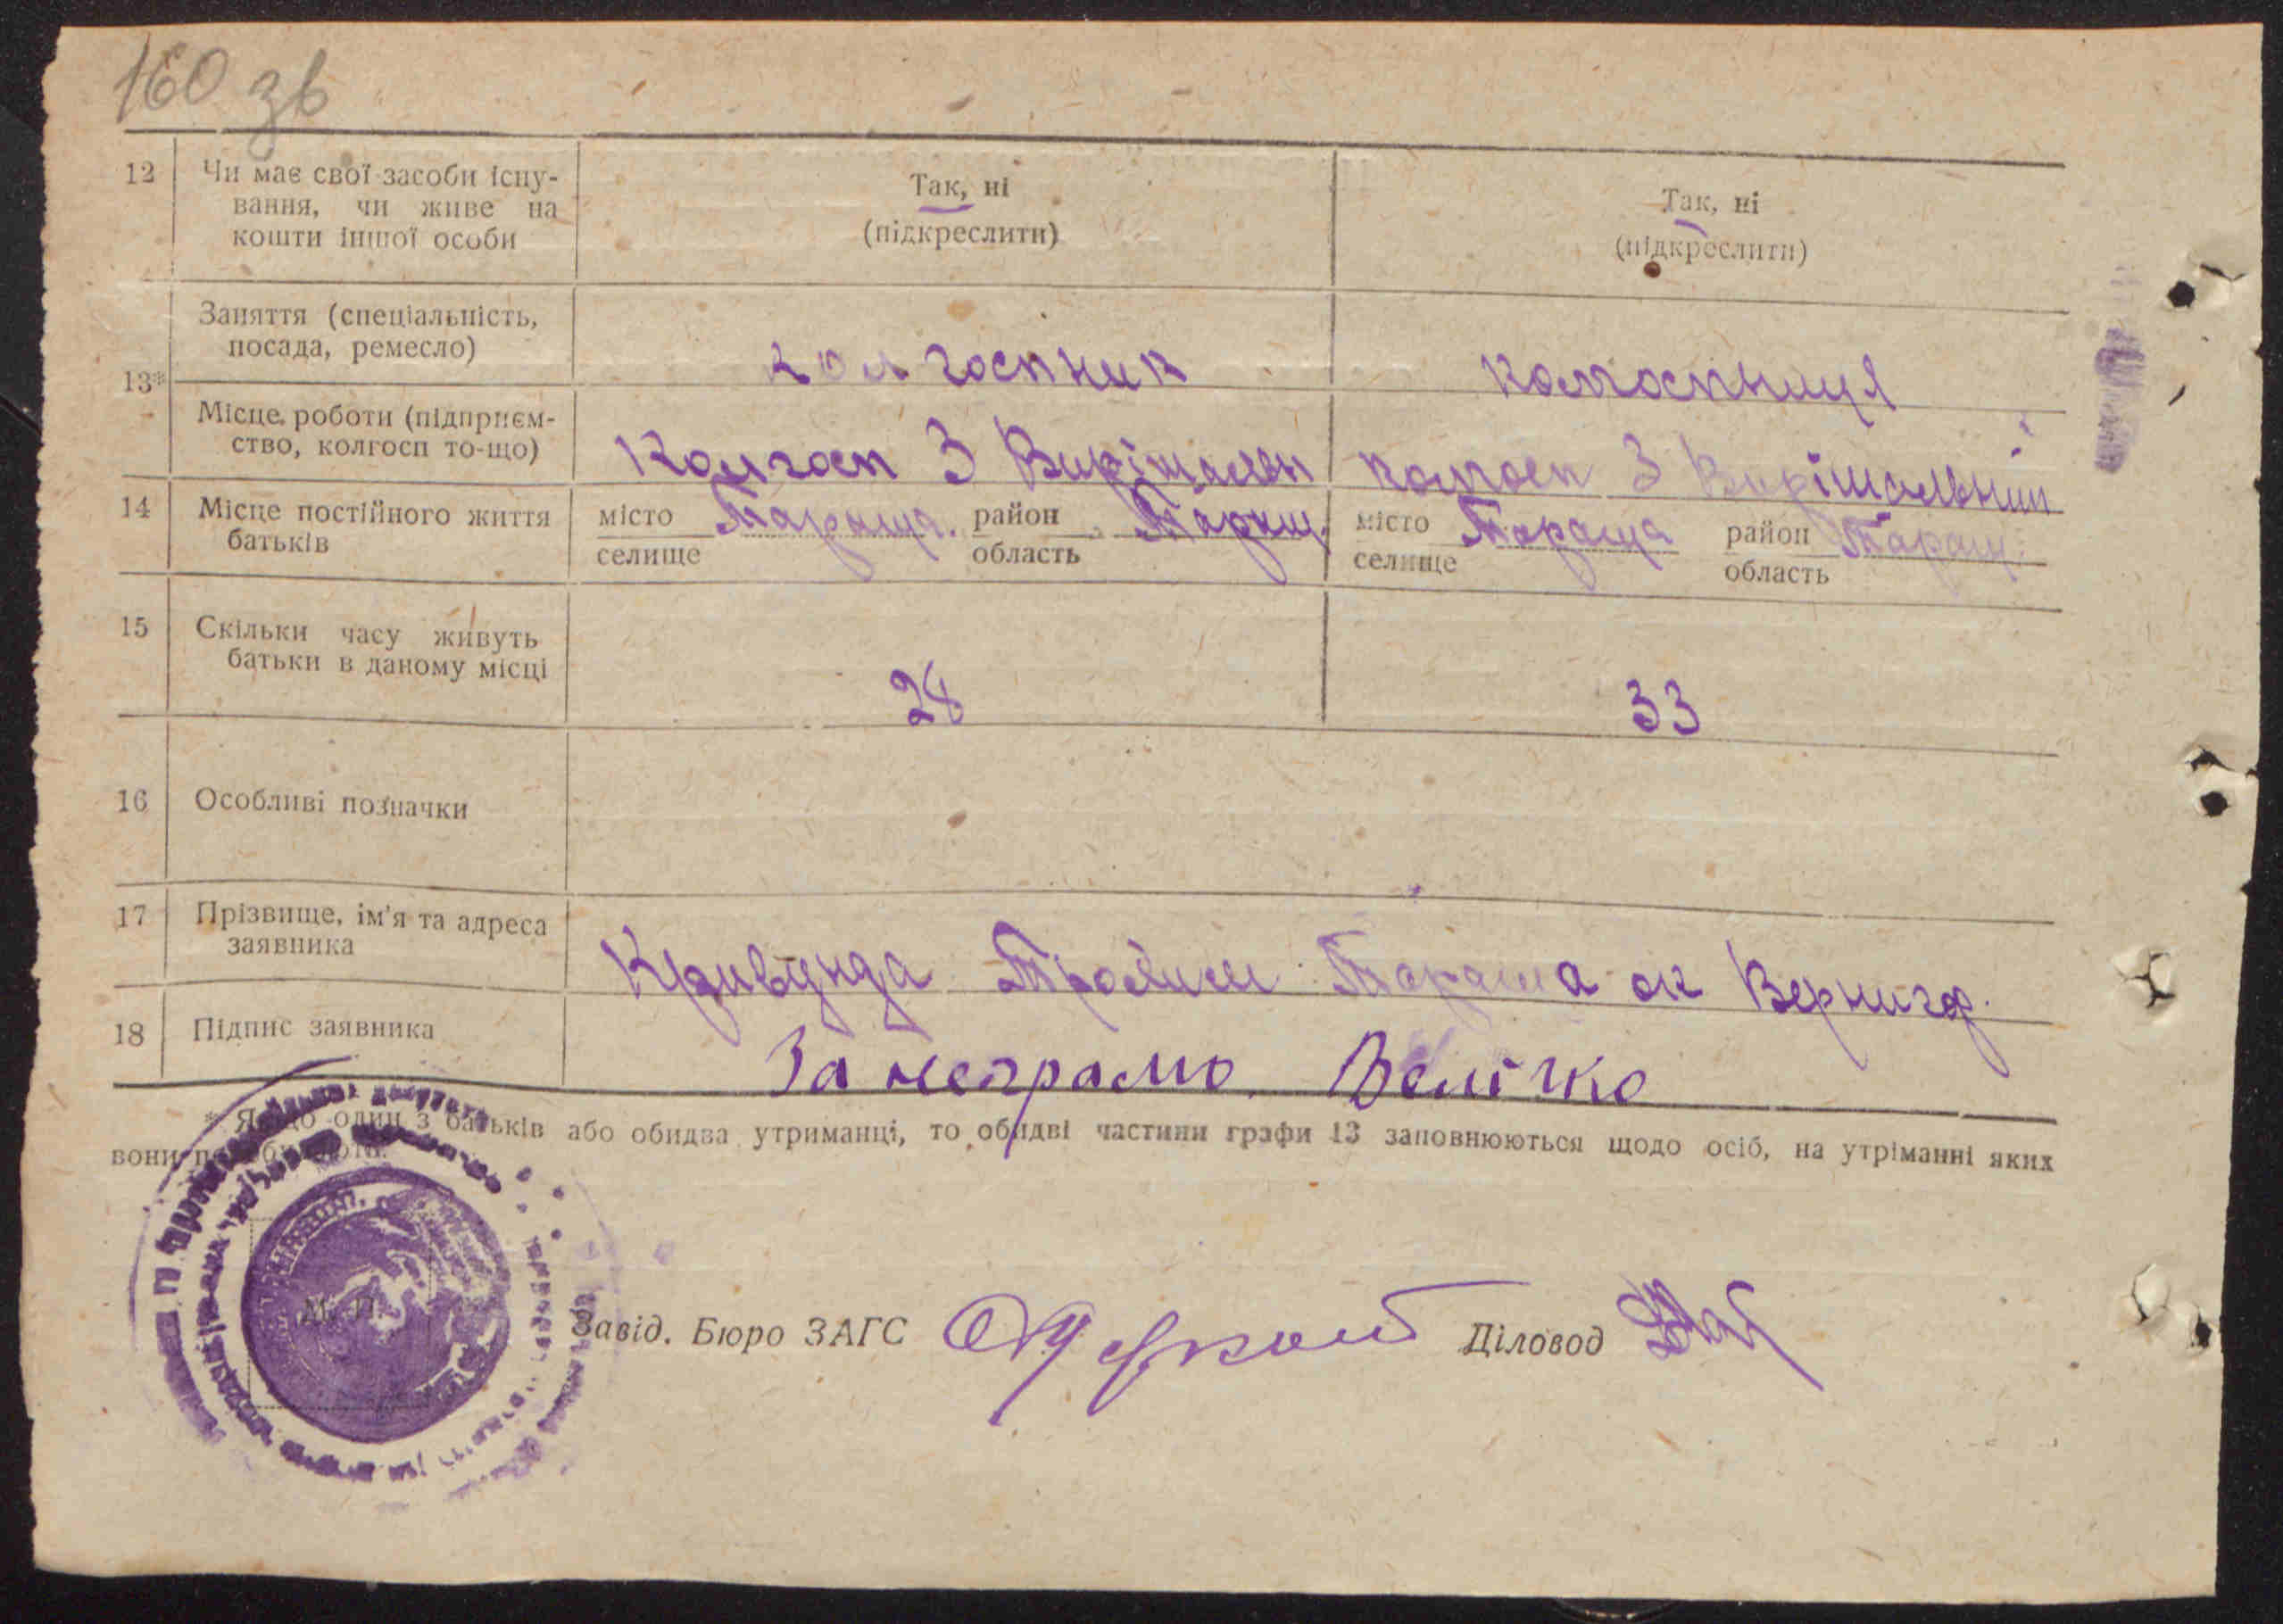 160 зв
12 Чи має свої засоби існу-
вання, чи живе на
кошти іншої особи
Так, ні
(підкреслити)
Так, ні
(підкреслити)
13*
Заняття (спеціальність,
посада, ремесло)
колгоспник
колгоспниця
Місце роботи (підприєм-
ство, колгосп то-що)
Колгосп 3 Вирішальн
колгосп 3 Вирішальний
14 Місце постійного життя
батьків
місто Тараща. район Таращ.
селище область
місто Тараща район Таращ.
селище область
15 Скільки часу живуть
батьки в даному місці
28
33
16 Особливі позначки
17 Прізвище, ім'я та адреса
заявника
Кривунда Трохим Тараща ок Вернигор.
18 Підпис заявника
За неграмо. Велічко
* Якщо один з батьків або обидва утриманці, то обидві частини графи 13 заповнюються щодо осіб, на утріманні яких
вони перебувають.
М. П.
Завід. Бюро ЗАГС
Діловод